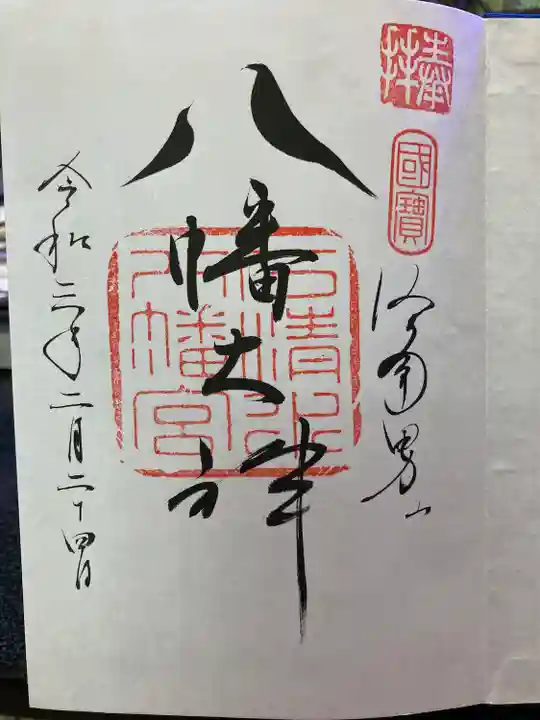 奉拝
國寶
洛南男山
八幡大神
石清水八幡宮
令和三年二月二十四日